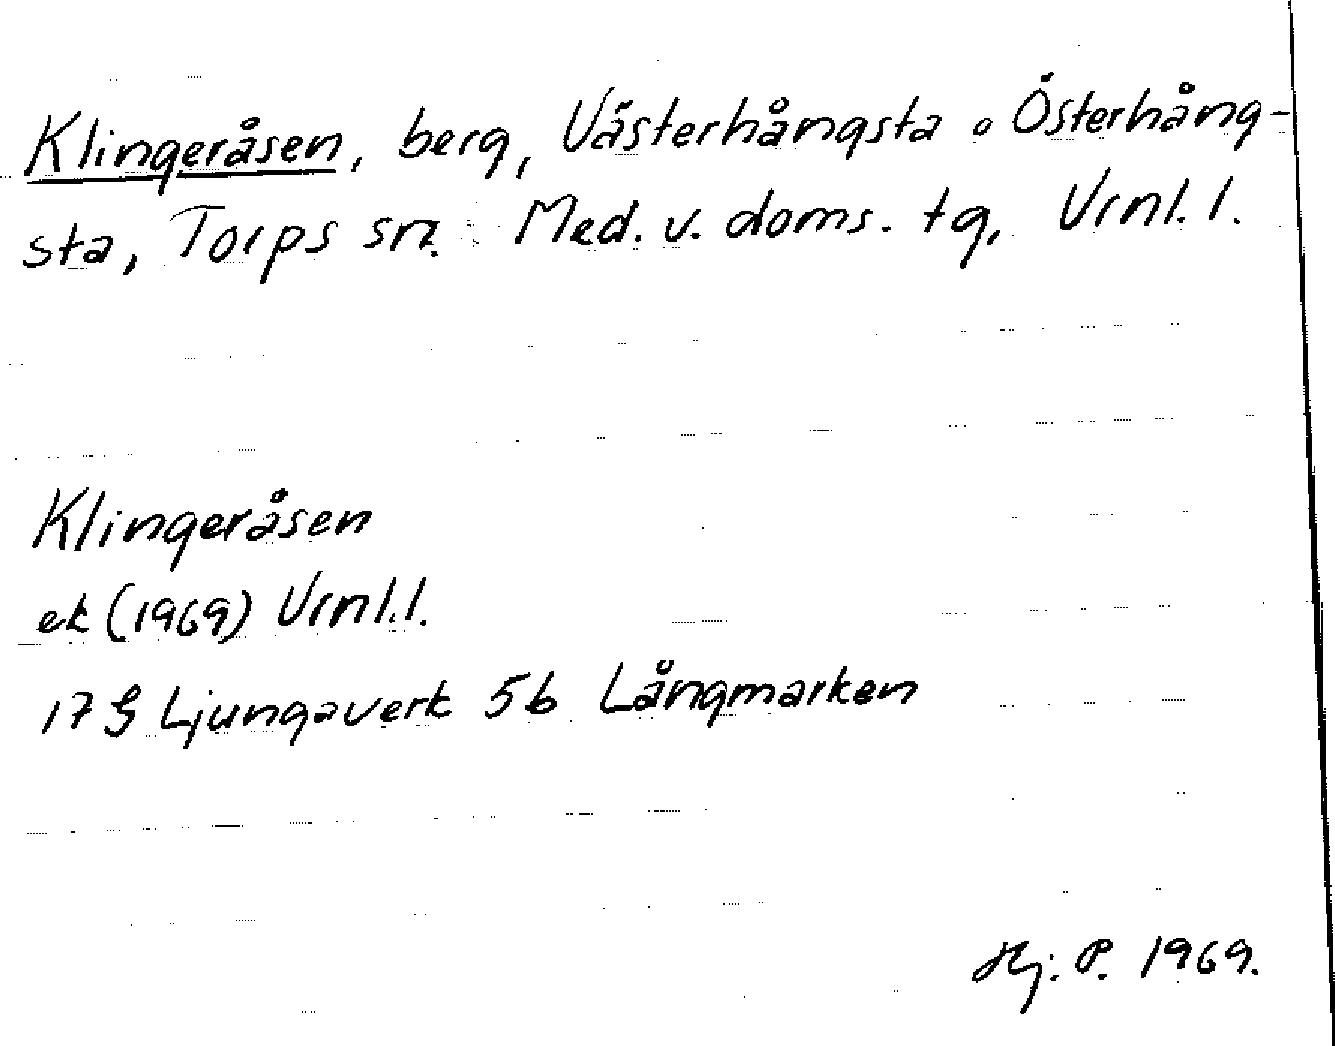 Klingeråsen, berg, Västerhångsta o Österhång-
sta, Torps sn. Med. v. doms. tg, Vrnl. l.
Klingeråsen
ek (1969) Vrnl. l.
17 G Ljungaverk 5b Långmarken
Hj. P. 1969.